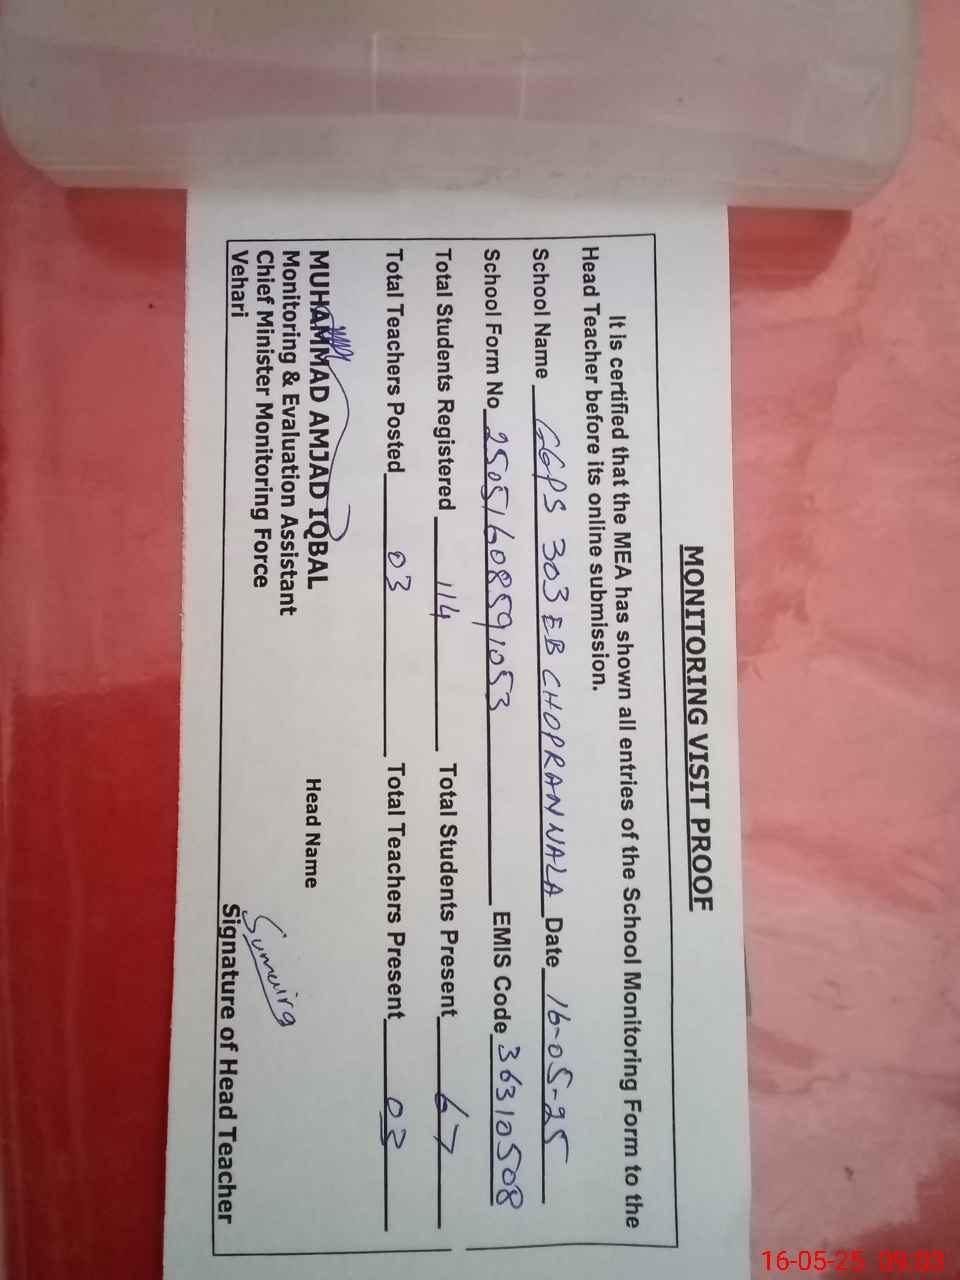 MONITORING VISIT PROOF
It is certified that the MEA has shown all entries of the School Monitoring Form to the
Head Teacher before its online submission.
School Name GGPS 303 EB CHOPRANWALA Date 16-05-25
School Form No 25051608591053 EMIS Code 36310508
Total Students Registered 114 Total Students Present 67
Total Teachers Posted 03 Total Teachers Present 03
MUHAMMAD AMJAD IQBAL Head Name
Monitoring & Evaluation Assistant
Chief Minister Monitoring Force Sumaira
Vehari Signature of Head Teacher
16-05-25 09:03